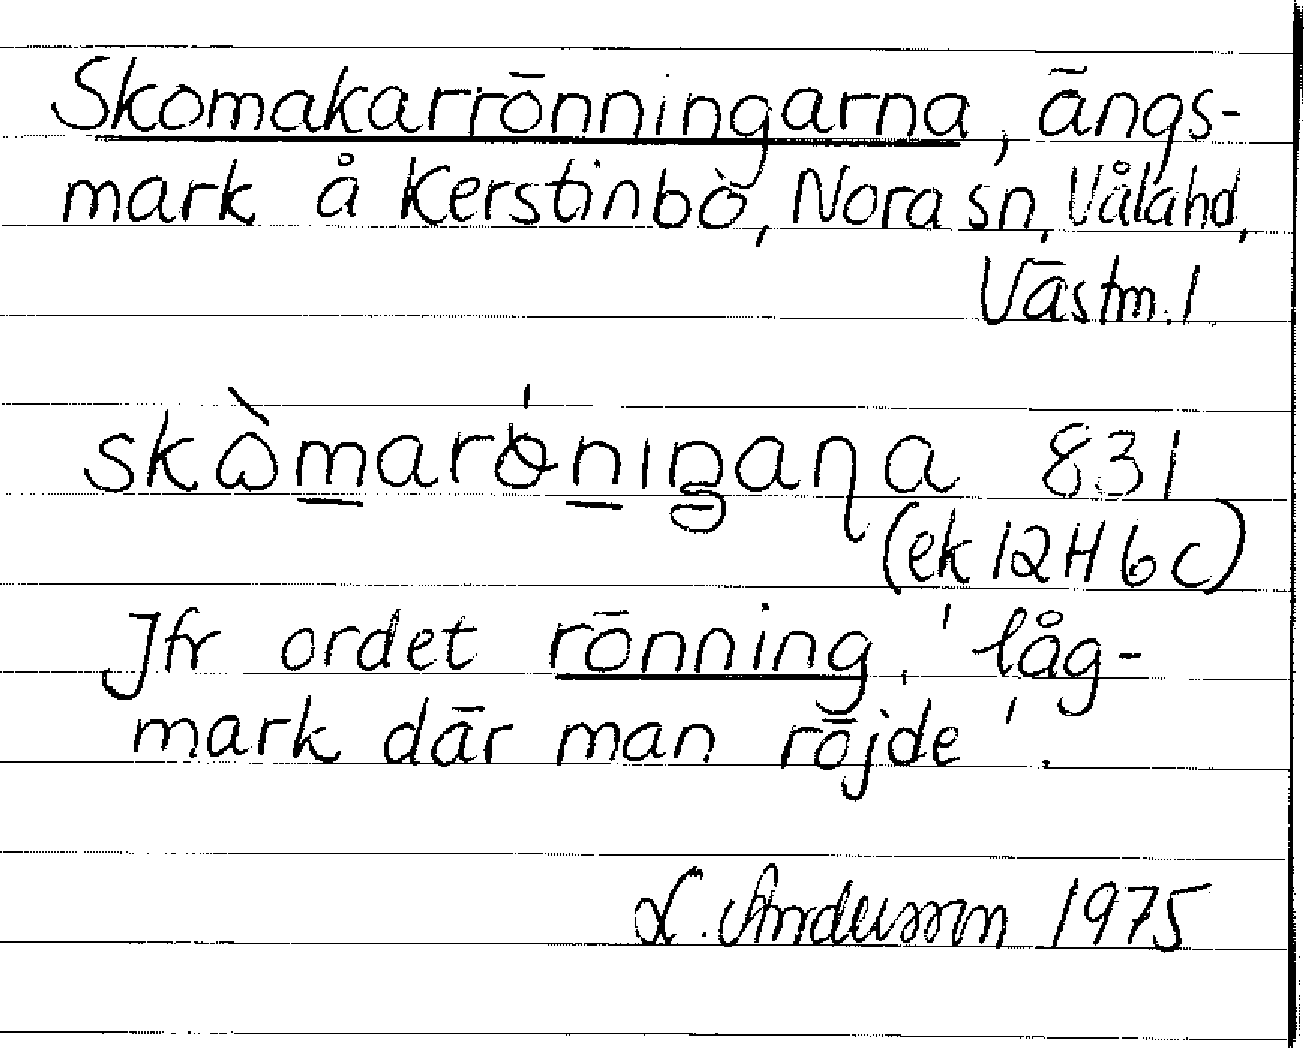 Skomakarrönningarna, ängs-
mark å Kerstinbo, Nora sn, Våla hd,
Västm. l
skὼmarɵ́niŋaɳa 831
(ek 12H 6c)
Jfr ordet rönning, 'låg-
mark där man röjde'.
L. Andersson 1975